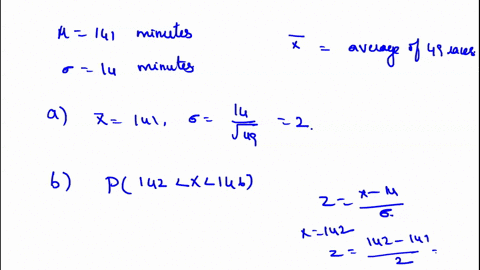 μ = 141 minutes
σ = 14 minutes
x̄ = average of 49 races
a) x̄ = 141, σ = 14/√49 = 2.
b) P(142 < x < 146)
z = (x - μ)/σ
x = 142
z = (142 - 141)/2 =